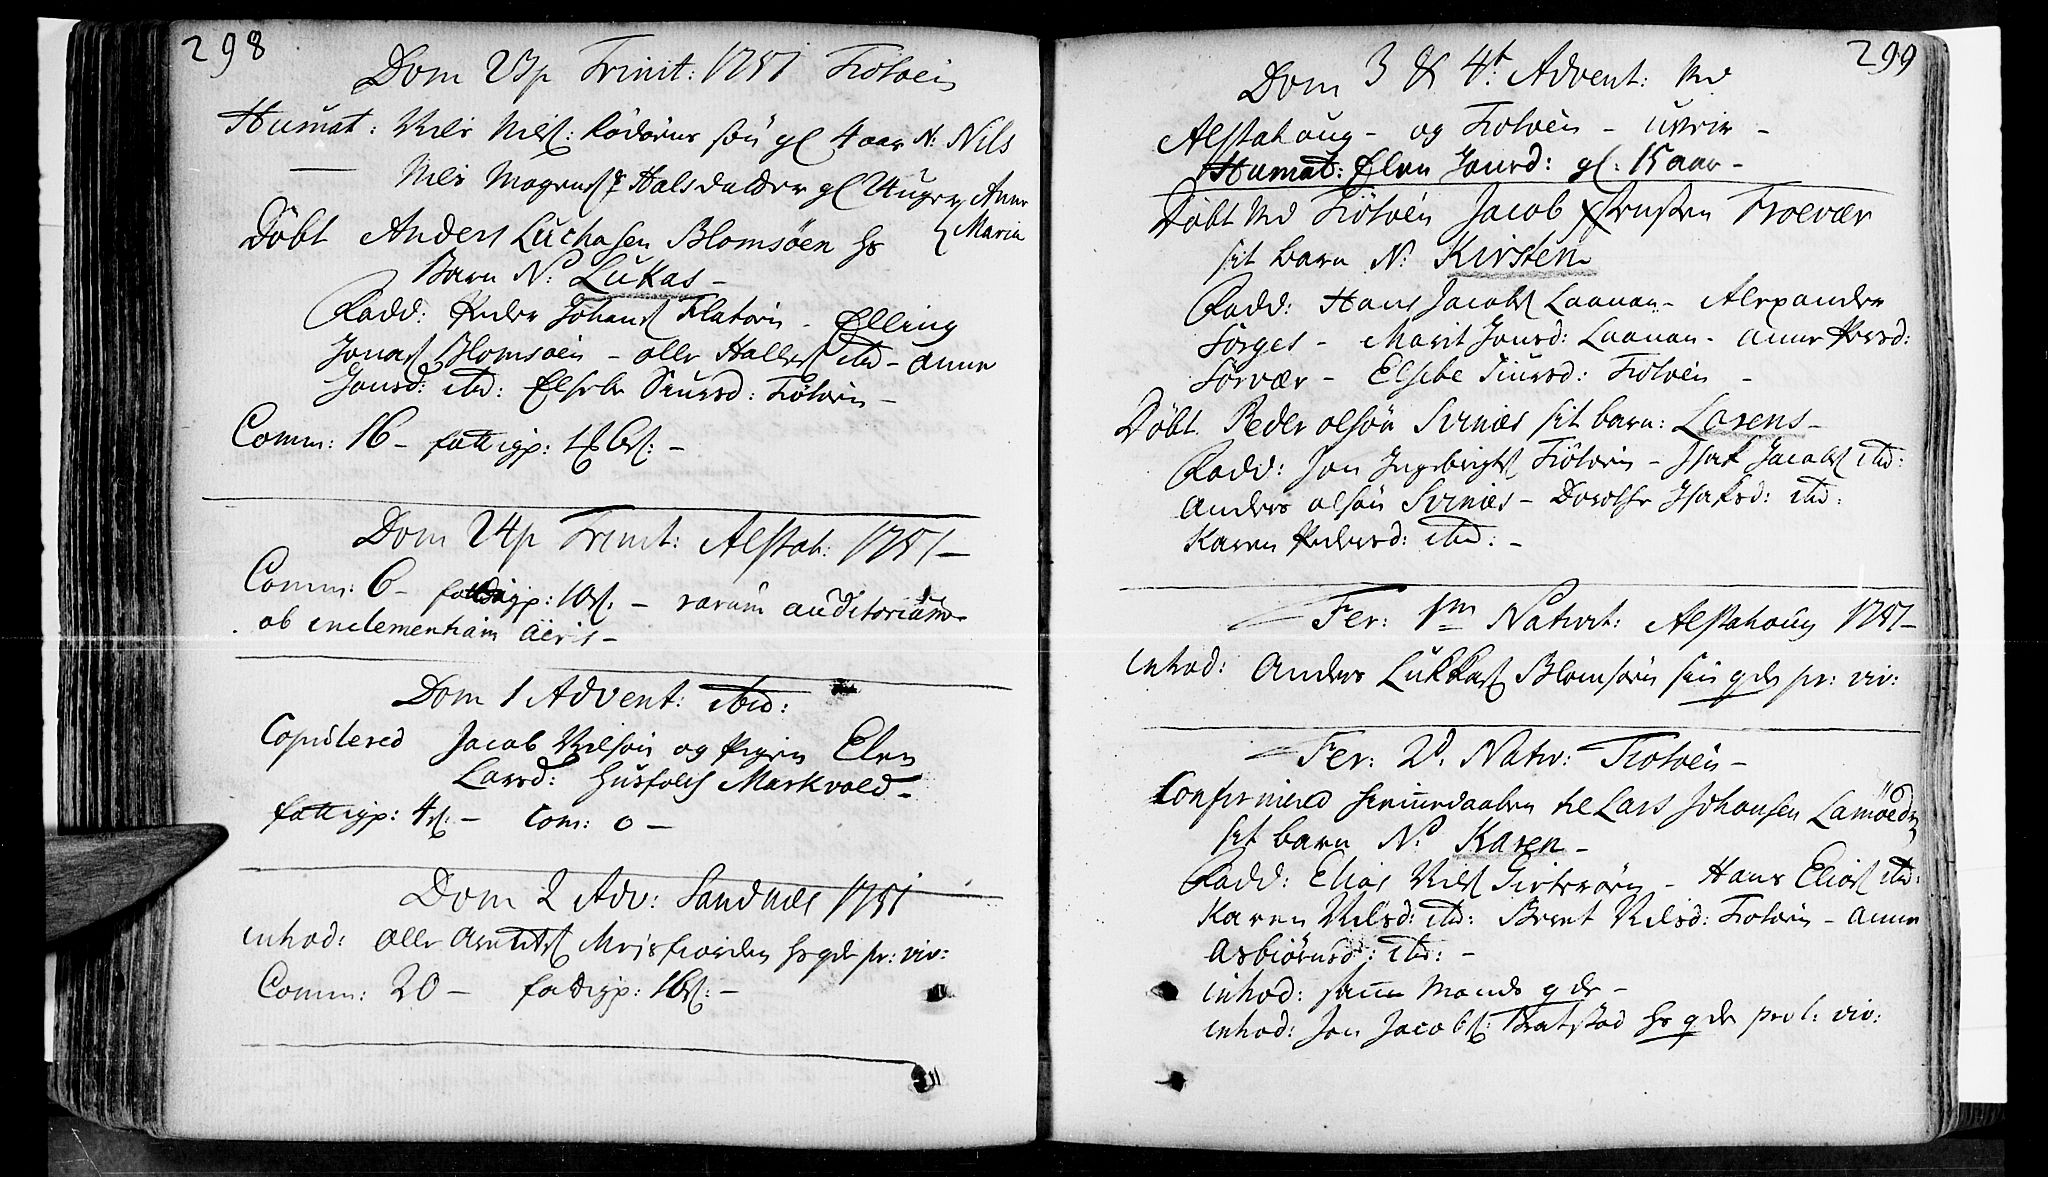 298
Dom 23 p Trinit: 1751 Tiötöen
Humat: Niels Niels: Rödöens sön gl 4 aar N: Nils
— Niels Mogens Halsdatter gl Uuger Anne
Maria
Döbt Anders Luchasen Blomsöen hs
Barn N: Lukas –
Fadd: Peder Johans Flatöen – Elling
Jonas Blomsöen – olle Halles ibd – anne
Jonsd: ibd: Elsebe Siursd: Tiötöen –
Comm: 16 – fattigp:
Dom 24 p Trinit: Alstah: 1751 –
Comm: 6 – fattigp: – rarum auditorium
ob inclementiam aëris –
Dom 1 Advent: ibid:
Copulered Jacob Nilsön og Pigen Elen
Larsd: husfolch Markvold –
fattigp: 4 – Com: 0 –
Dom 2 Adv: Sandnæs 1751
introd: olle Arentes hs qde pr: viv:
Comm: 20 – fattigp: –
299
Dom 3 & 4t Advent: ved
Alstahoug – og Tiötöen – uveir –
Humat: Elen Jonsd: gl: 15 aar –
Döbt ved Tiötöen Jacob Troevær
sit barn N: Kirsten –
Fadd: Hans Jacobs Laanan – Alexander
Sörges – Marit Jonsd: Laanan – anne Persd:
Sörvær – Elsebe Siursd: Tiötöen –
Döbt Peder olsön Svines sit barn: Lorens –
Fadd: Jon Ingebrigts Tiötöen – Isak Jacobs ibd:
Anders olsön Svines – Dorothe Isaksd: ibd:
Karen Pedersd: ibd: –
Fer: 1m Nativit: Alstahoug 1751 –
introd: Anders Lukkas Blomsöen sin qde pr: viv:
Fer: 2d Nativ: Tiotöen –
Confirmered hiemedaaben til Lars Johansen
sit barn N: Karen –
Fadd: Elias Nils – Hans Elias ibd:
Karen Nilsd: ibd: Beret Nilsd: Tiotöen – anne
Asbiörnsd: ibd: –
introd: samme Mands qde –
introd: Jon Jacobs: hs qde prol: viv: